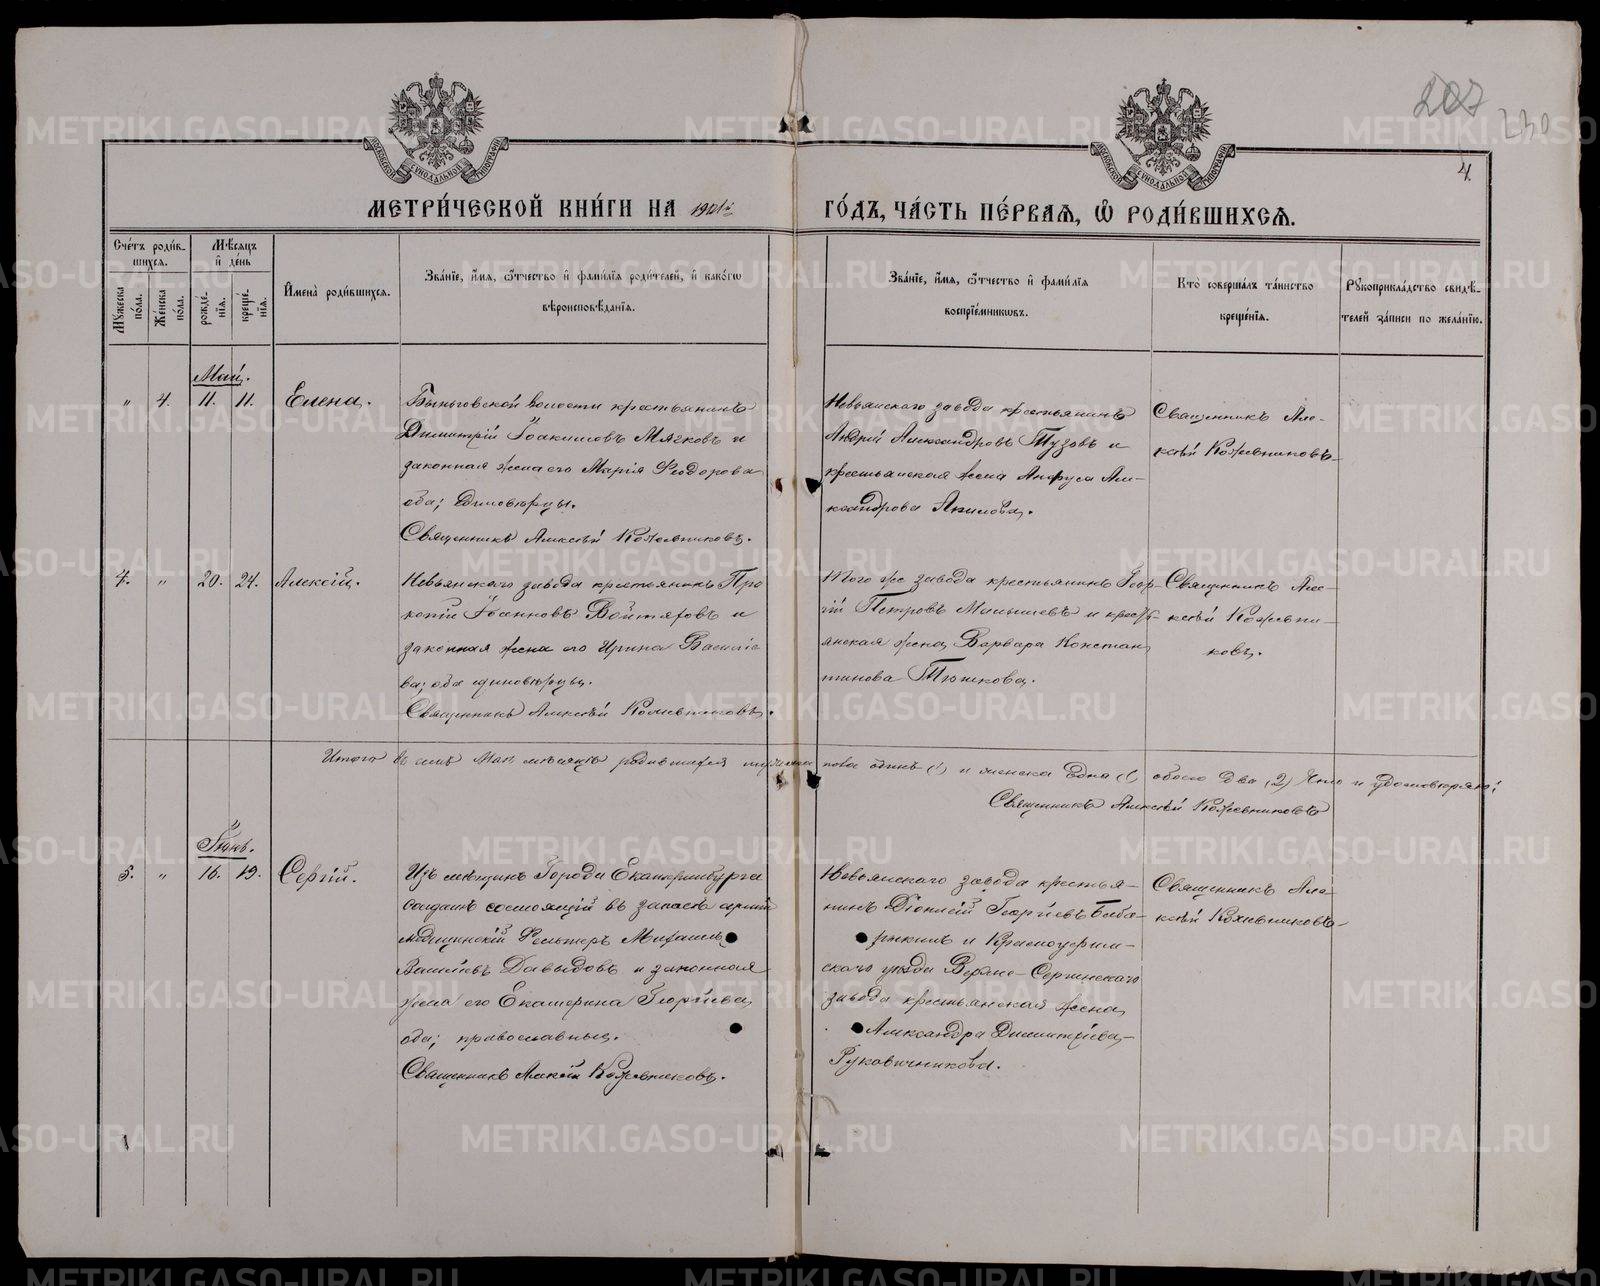 207
230
4.
МОСКОВСКОЙ СѴНОДАЛЬНОЙ ТИПОГРАФІИ
МОСКОВСКОЙ СѴНОДАЛЬНОЙ ТИПОГРАФІИ
МЕТРИ́ЧЕСКОЙ КНИ́ГИ НА 1901й ГО́ДЪ, ЧА́СТЬ ПЕ́РВАЯ, Ѽ РОДИ́ВШИХСЯ.
Сче́тъ роди́в-
шихся.
Мꙋжеска по́ла.
Же́нска по́ла.
Мѣ́сяцъ
и҆ де́нь
рожде-
нїя.
креще-
нїя.
И҆мена̀ роди́вшихся.
Зва́нїе, и҆́мя, ѻ҆́тчество и҆ фами́лїя роди́телей, и҆ како́гѡ
вѣроисповѣ́данїя.
Зва́нїе, и҆́мя, ѻ҆́тчество и҆ фами́лїя
воспрїе́мникѡвъ.
Кто̀ соверша́лъ та́инство
креще́нїя.
Рꙋкоприкла́дство свидѣ́-
телей за́писи по жела́нїю.
Май.
" 4. 11. 11. Елена.
Быньговской волости крестьянинъ
Димитрій Іоакимовъ Мягковъ и
законная жена его Марія Ѳеодорова
оба; единовѣрцы.
Священникъ Алексѣй Кожевниковъ.
Невьянскаго завода крестьянинъ
Андрей Александровъ Тузовъ и
крестьянская жена Анфуса Але-
ксандрова Акилова.
Священникъ Але-
ксѣй Кожевниковъ
4. " 20. 24. Алексій.
Невьянскаго завода крестьянинъ Про
копій Іоанновъ Войтяховъ и
законная жена его Ирина Василіе
ва; оба единовѣрцы.
Священникъ Алексѣй Кожевниковъ.
Того же завода крестьянинъ Геор-
гій Петровъ Малышевъ и кресть-
янская жена Варвара Констан
тинова Тюшкова.
Священникъ Але-
ксѣй Кожевни-
ковъ.
Итого въ семъ Маѣ мѣсяцѣ родившихся мужеска пола одинъ (1) и женска одна (1) обоего два (2) Чемъ и удостовѣряю:
Священникъ Алексѣй Кожевниковъ
Іюнь.
5. " 16. 19. Сергій.
Изъ мѣщанъ Города Екатеринбурга
солдатъ состоящій въ запасѣ арміи
медицинскій Фельшеръ Михаилъ
Василіевъ Давыдовъ и законная
жена его Екатерина Георгіева,
оба; православные.
Священникъ Алексѣй Кожевниковъ.
Невьянскаго завода крестья-
нинъ Діонисій Георгіевъ Баба-
рыкинъ и Красноуфим-
скаго уѣзда Верхне-Сергинскаго
завода крестьянская жена
Александра Димитріева
Рукавичникова.
Священникъ Але-
ксѣй Кожевниковъ
METRIKI.GASO-URAL.RU